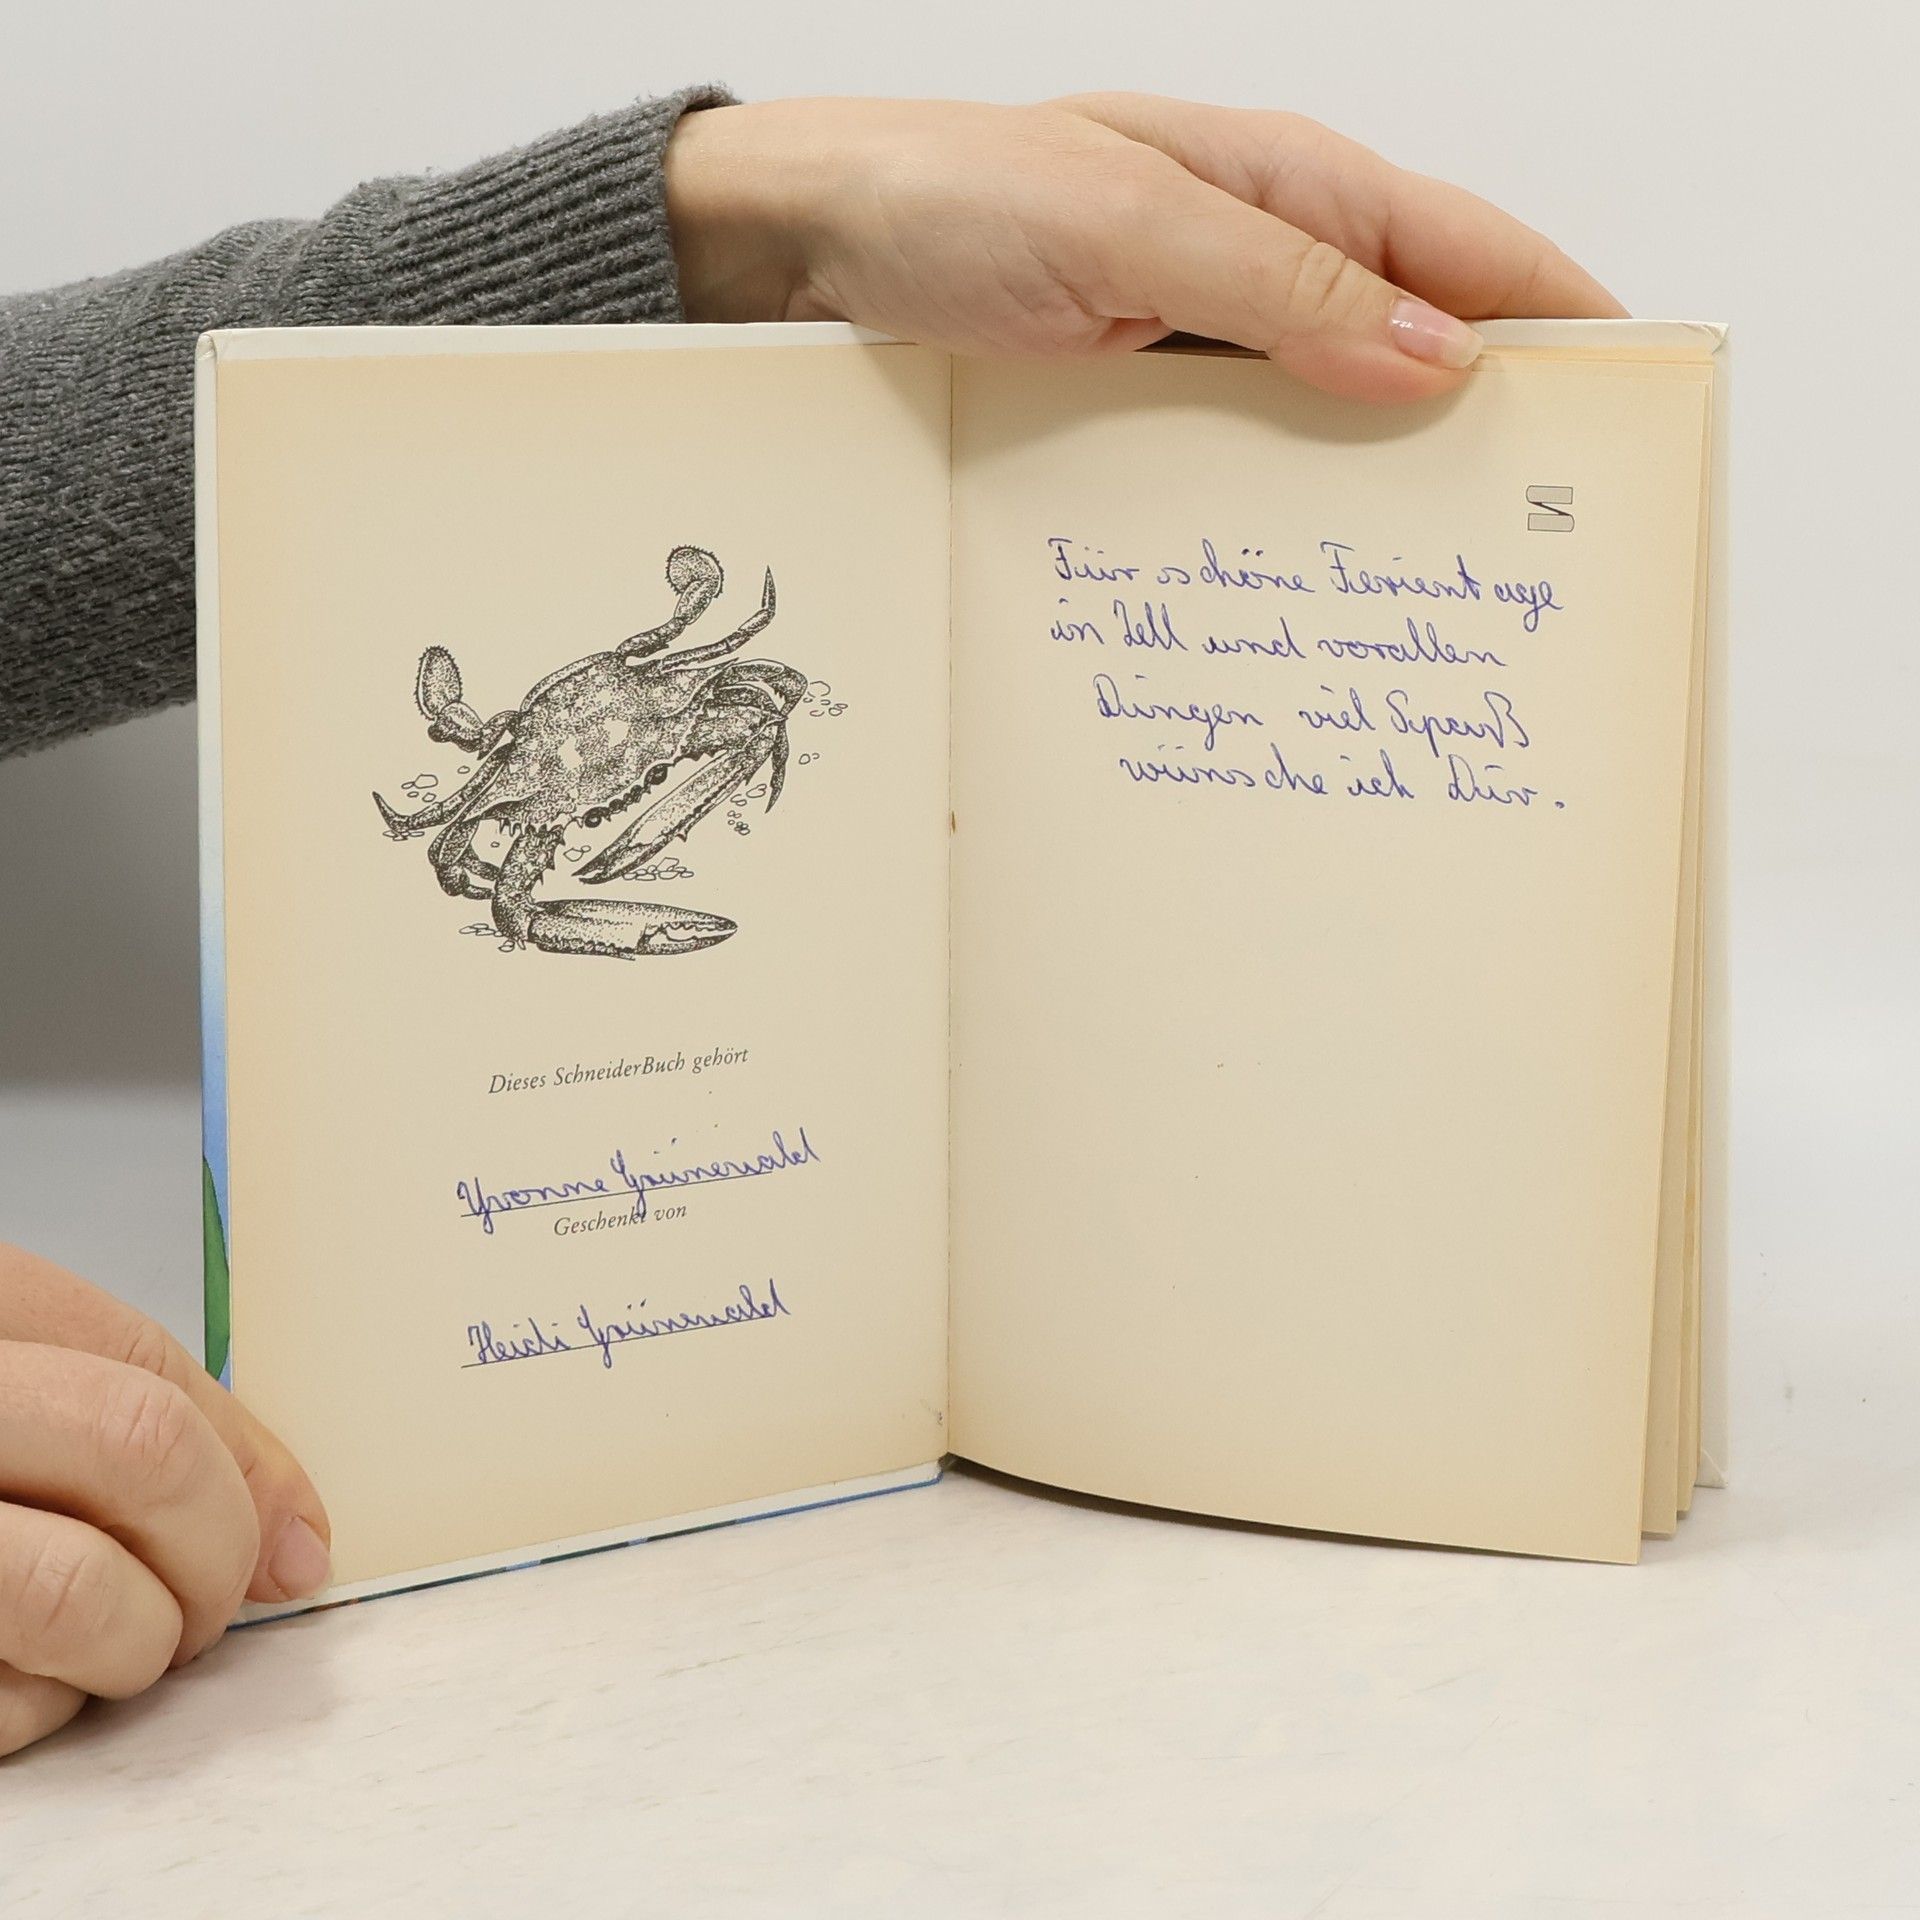 Dieses SchneiderBuch gehört
Yvonne Grünewald
Geschenkt von
Heidi Grünewald
Für schöne Ferientage
in Zell und vorallen
Dingen viel Spaß
wünsche ich Dir.